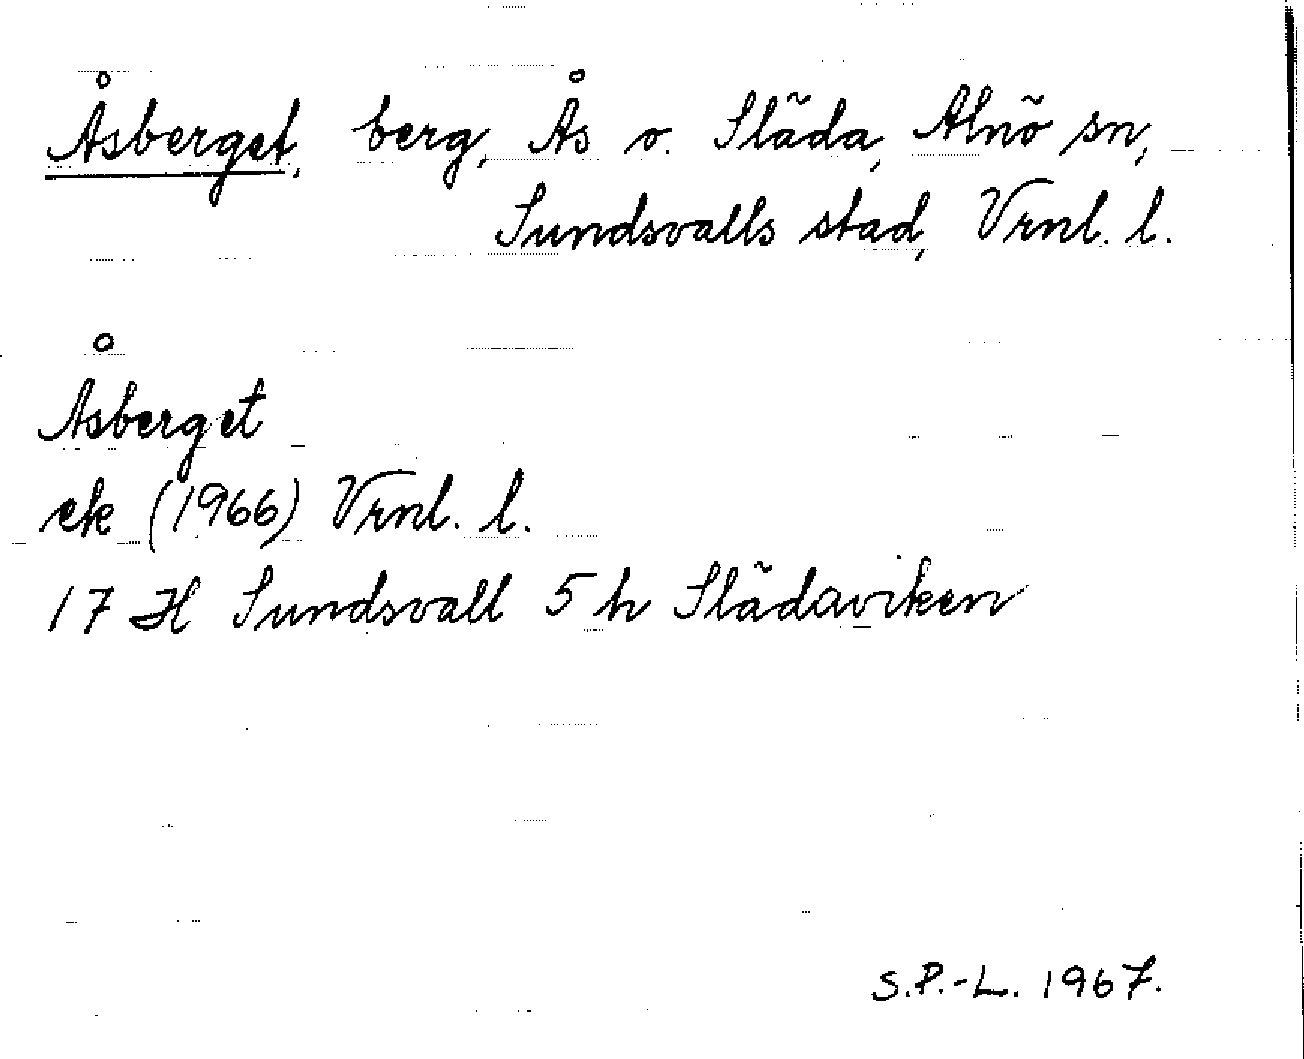 Åsberget, berg, Ås o. Släda, Alnö sn,
Sundsvalls stad, Vrnl. l.
Åsberget
ek (1966) Vrnl. l.
17 H Sundsvall 5 h Slädaviken
S.P.-L. 1967.